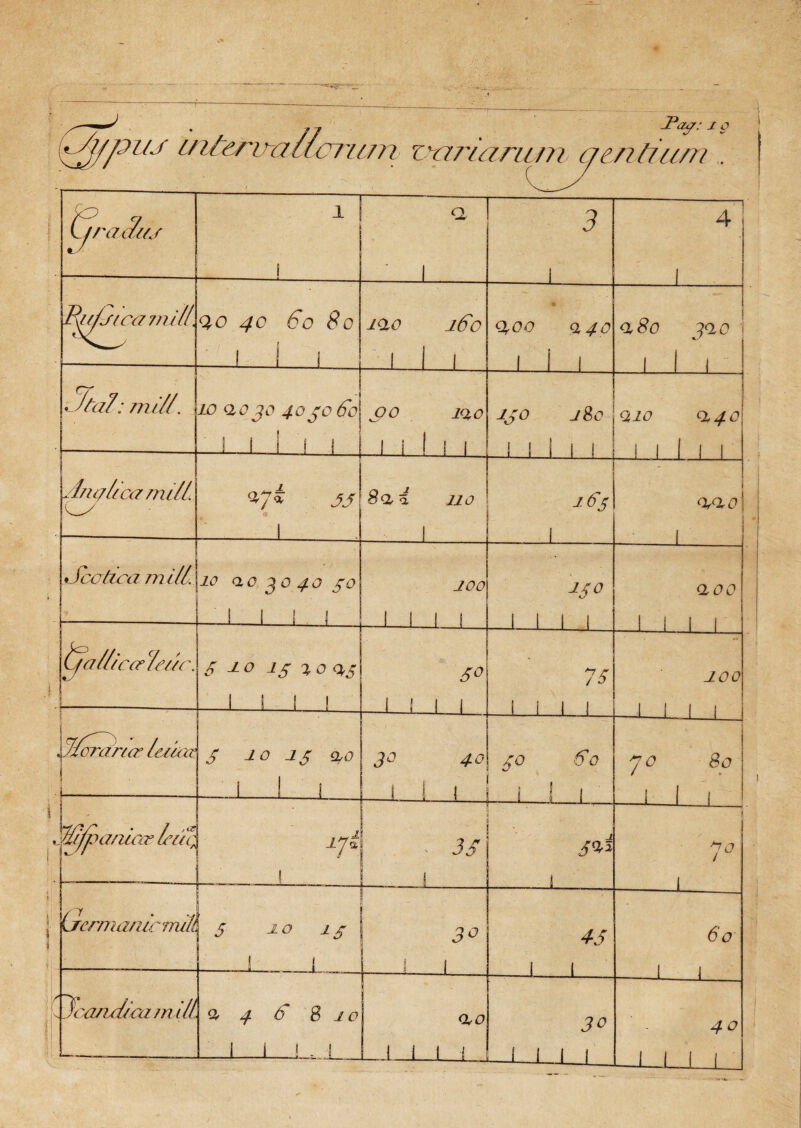 Pag: 19
Typus intervallorum variarum gentium .
Gradus 1 2 3 4
Russica mill. 20 40 60 80 120 160 200 240 280 320
Ital: mill. 10 20 30 40 50 60 90 120 150 180 210 240
Anglica mill. 27½ 55 82½ 110 165 220
Scotica mill. 10 20 30 40 50 100 150 200
Gallicæ leuc. 5 10 15 20 25 50 75 100
Horariæ leucæ 5 10 15 20 30 40 50 60 70 80
Hispanicæ leuc 17½ 35 52½ 70
Germanic mill 5 10 15 30 45 60
Scandica mill. 2 4 6 8 10 20 30 40